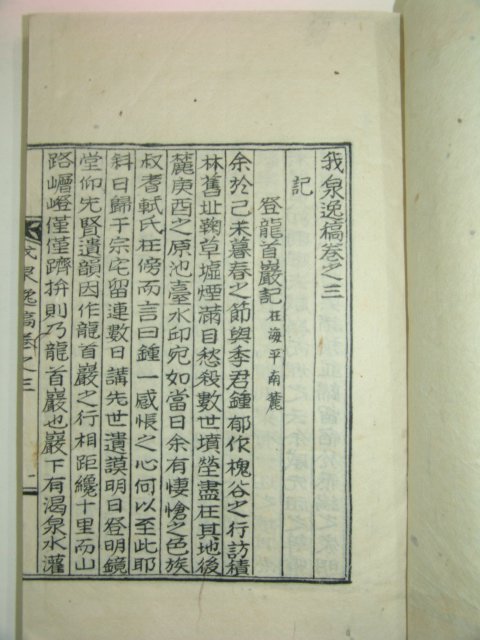 我泉逸稿卷之三
記
登龍首巖記 在海平南麓
余於己未暮春之節與季君鍾郁作槐谷之行訪積
林舊址鞠草墟煙滿目愁殺數世墳塋盡在其地後
麓庚酉之原池臺水邱宛如當日余有悽愴之色族
叔耆軾氏在傍而言曰鍾一感悵之心何以至此耶
斜日歸于宗宅留連數日講先世遺謨明日登明鏡
堂仰先賢遺韻因作龍首巖之行相距纔十里而山
路巆嶝僅僅躋拚則乃龍首巖也巖下有渴泉水灌
我泉逸稿卷之三
一